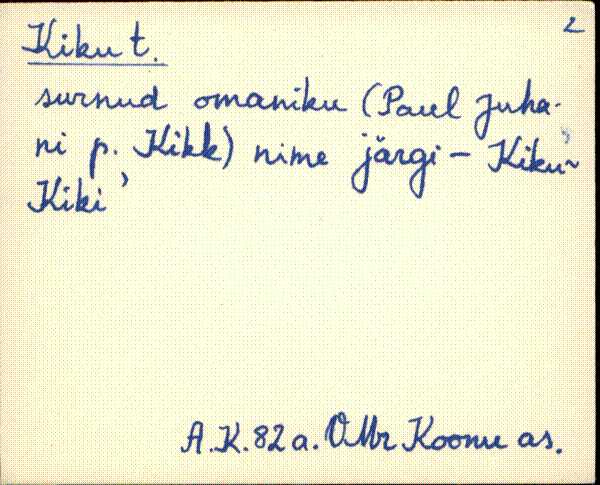 2
Kiku t.
surnud omaniku (Paul Juha-
ni p. Kikk) nime järgi – Kiku ~
Kiki’
A.K. 82 a. Koonu as.